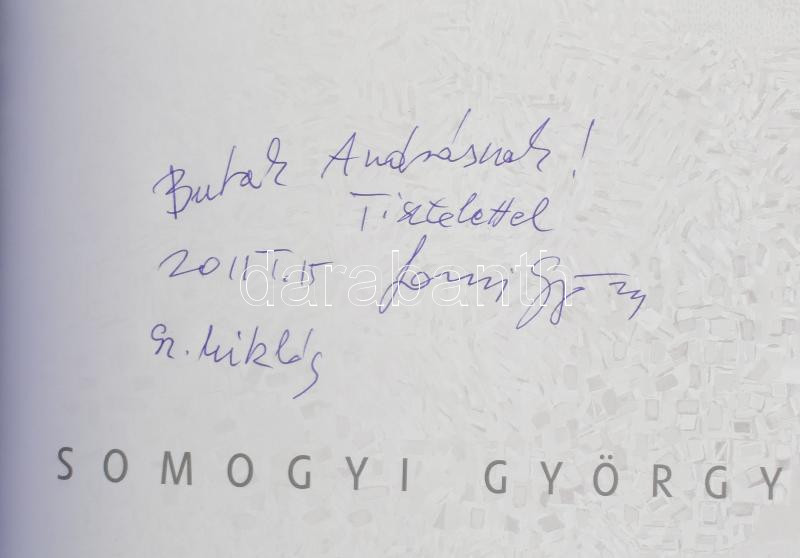 Butak Andrásnak!
Tisztelettel
2011.I.15 Somogyi György
Sz. Miklós
darabanth
SOMOGYI GYÖRGY